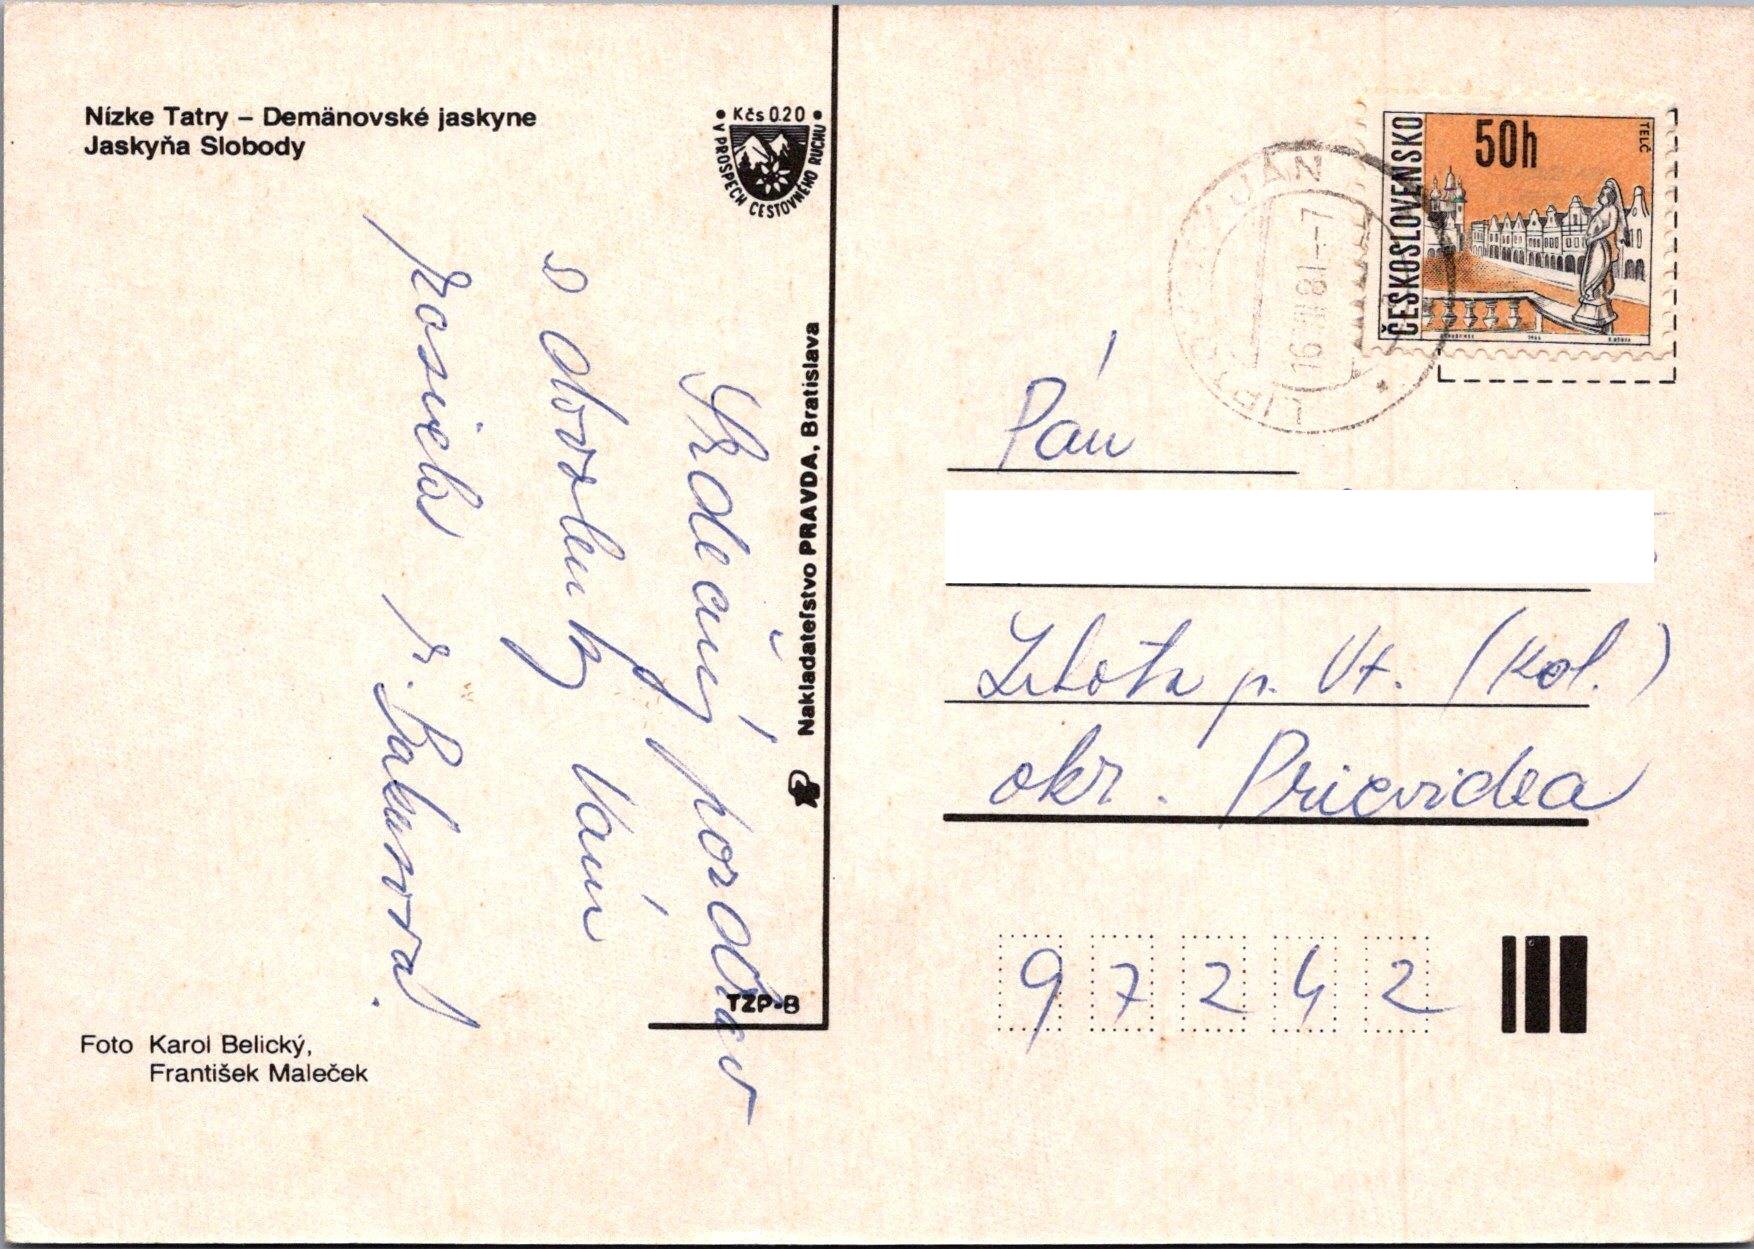 Nízke Tatry – Demänovské jaskyne
Jaskyňa Slobody
• Kčs 0.20 •
V PROSPECH CESTOVNÉHO RUCHU
Srdečný pozdrav
s dovolenky Vám
posiela r.
Nakladateľstvo PRAVDA, Bratislava
TZP-B
Foto Karol Belický,
František Maleček
ČESKOSLOVENSKO
50h
TELČ
JÁN
16 VIII 81 – 7
Pán
Lehota p. Vt. (Kol.)
okr. Prievidza
97242